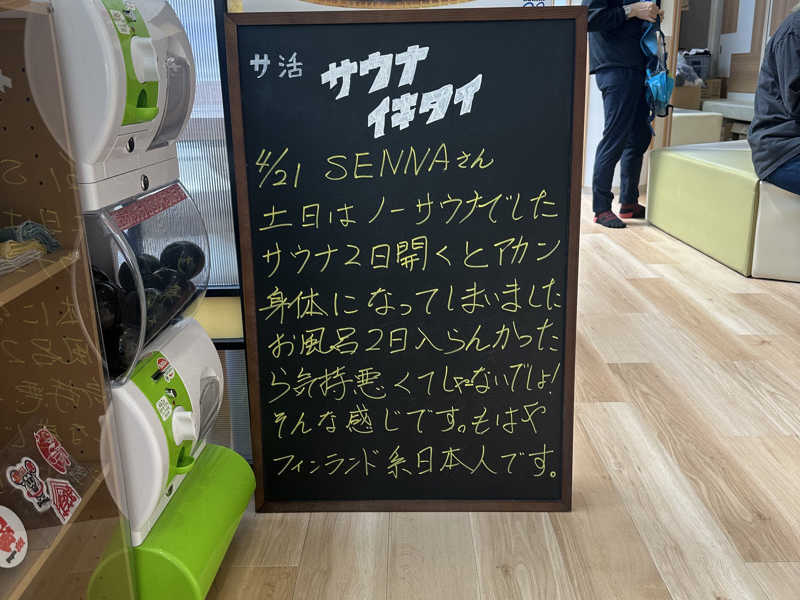 サ活
サウナ
イキタイ
4/21 SENNAさん
土日はノーサウナでした
サウナ2日開くとアカン
身体になってしまいました
お風呂2日入らんかった
ら気持悪くてしゃないでしょ!
そんな感じです。もはや
フィンランド系日本人です。